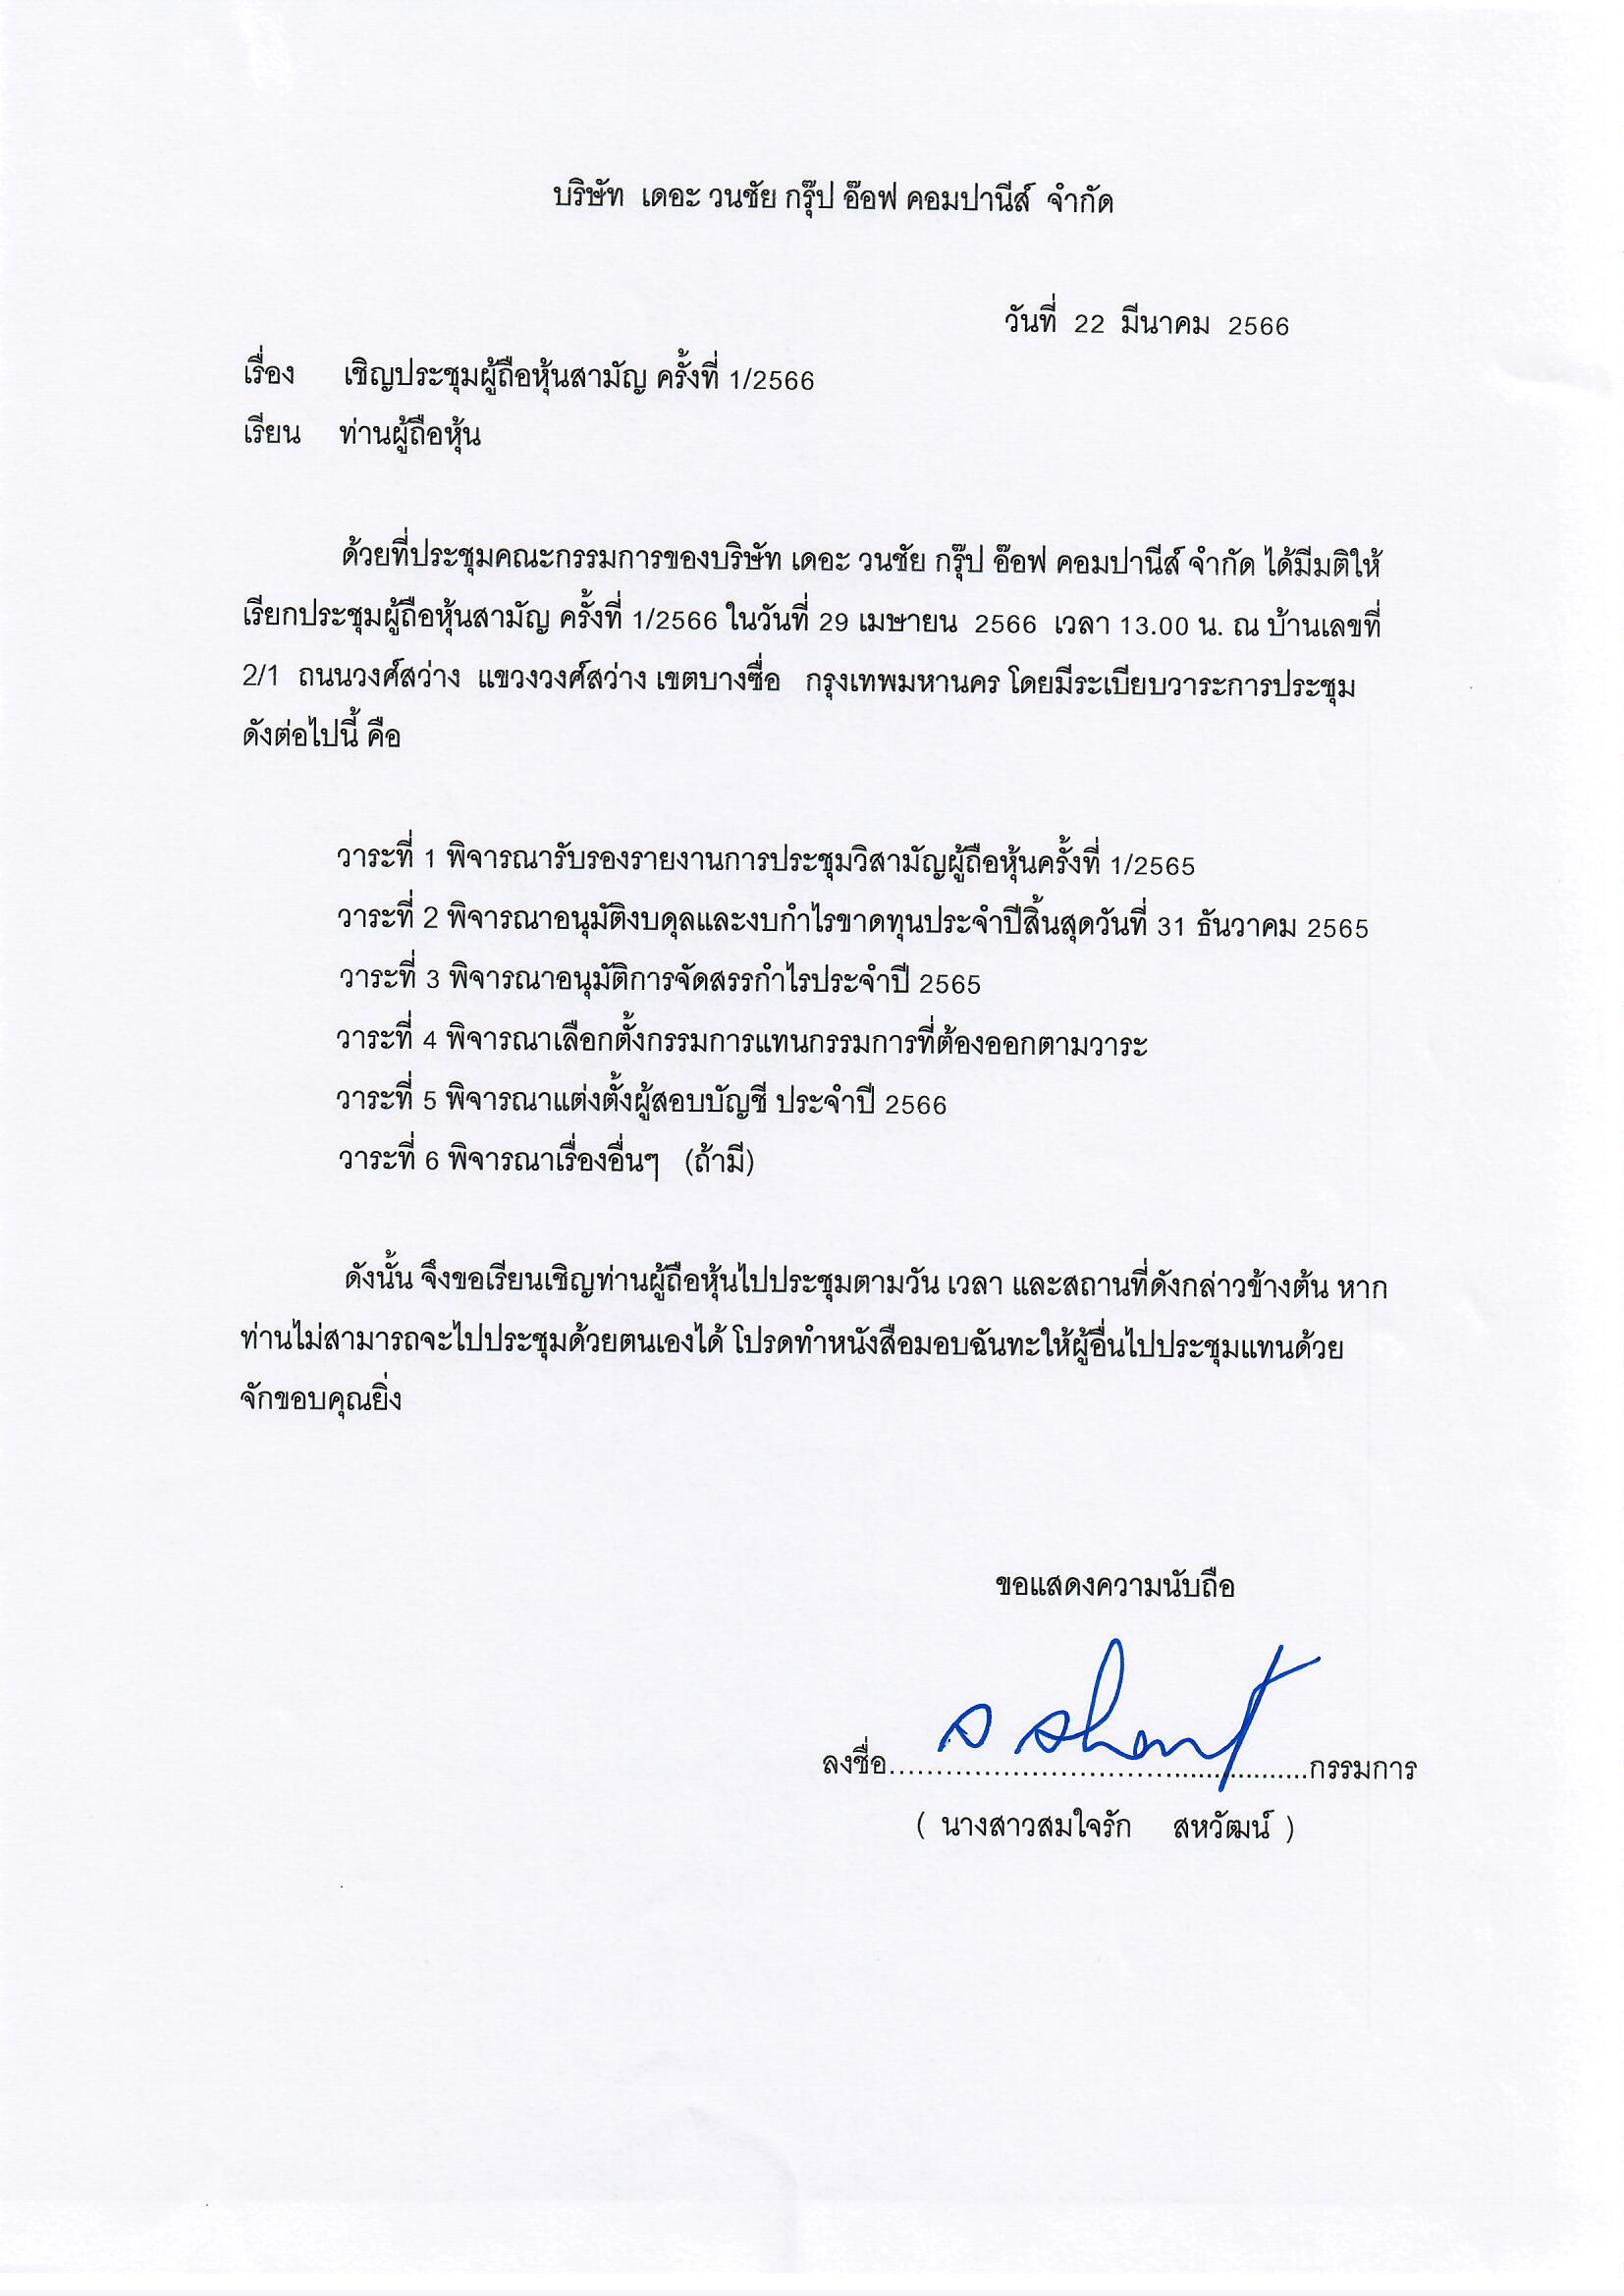 บริษัท เดอะ วนชัย กรุ๊ป อ๊อฟ คอมปานีส์ จำกัด
วันที่ 22 มีนาคม 2566
เรื่อง เชิญประชุมผู้ถือหุ้นสามัญ ครั้งที่ 1/2566
เรียน ท่านผู้ถือหุ้น
ด้วยที่ประชุมคณะกรรมการของบริษัท เดอะ วนชัย กรุ๊ป อ๊อฟ คอมปานีส์ จำกัด ได้มีมติให้
เรียกประชุมผู้ถือหุ้นสามัญ ครั้งที่ 1/2566 ในวันที่ 29 เมษายน 2566 เวลา 13.00 น. ณ บ้านเลขที่
2/1 ถนนวงศ์สว่าง แขวงวงศ์สว่าง เขตบางซื่อ กรุงเทพมหานคร โดยมีระเบียบวาระการประชุม
ดังต่อไปนี้ คือ
วาระที่ 1 พิจารณารับรองรายงานการประชุมวิสามัญผู้ถือหุ้นครั้งที่ 1/2565
วาระที่ 2 พิจารณาอนุมัติงบดุลและงบกำไรขาดทุนประจำปีสิ้นสุดวันที่ 31 ธันวาคม 2565
วาระที่ 3 พิจารณาอนุมัติการจัดสรรกำไรประจำปี 2565
วาระที่ 4 พิจารณาเลือกตั้งกรรมการแทนกรรมการที่ต้องออกตามวาระ
วาระที่ 5 พิจารณาแต่งตั้งผู้สอบบัญชี ประจำปี 2566
วาระที่ 6 พิจารณาเรื่องอื่นๆ (ถ้ามี)
ดังนั้น จึงขอเรียนเชิญท่านผู้ถือหุ้นไปประชุมตามวัน เวลา และสถานที่ดังกล่าวข้างต้น หาก
ท่านไม่สามารถจะไปประชุมด้วยตนเองได้ โปรดทำหนังสือมอบฉันทะให้ผู้อื่นไปประชุมแทนด้วย
จักขอบคุณยิ่ง
ขอแสดงความนับถือ
ลงชื่อ................................................กรรมการ
( นางสาวสมใจรัก สหวัฒน์ )